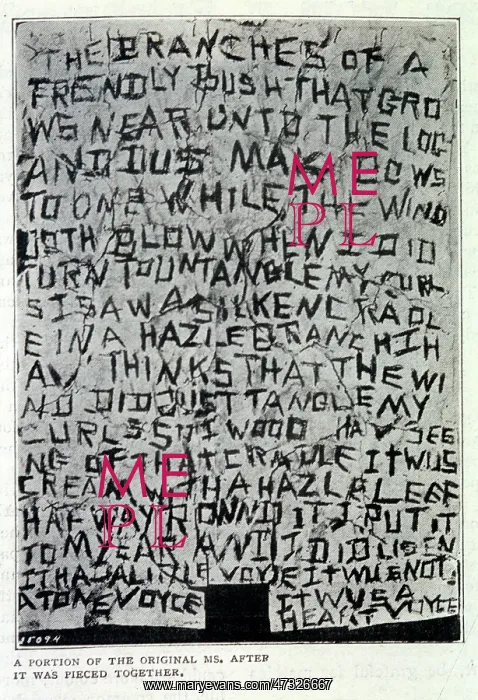 THE BRANCHES OF A
FRENDLY BUSH THAT GRO
WS NEAR UNTO THE LOG
AND DUS MAK BOWS
TO ONE WHILE THE WIND
DOTH BLOW WHEN I DID
TURN TO UNTANGLE MY CURL
S I SAW A SILKEN CRADL
E IN A HAZLE BRANCH I H
AV THINKS THAT THE WI
ND DID JUST TANGLE MY
CURLS SO I WOOD HAV SEE
NG OF THAT CRADLE IT WUS
CREAM WITH A HAZL LEEF
HAF WAY ROWND IT I PUT IT
TO MY EAR AND I DID LISEN
IT HAD A LITTLE VOYCE IT WUS NOT
A TONE VOYCE IT WUS A
HEART VOYCE
15094
A PORTION OF THE ORIGINAL MS. AFTER
IT WAS PIECED TOGETHER.
ME
PL
ME
PL
www.maryevans.com/47326667